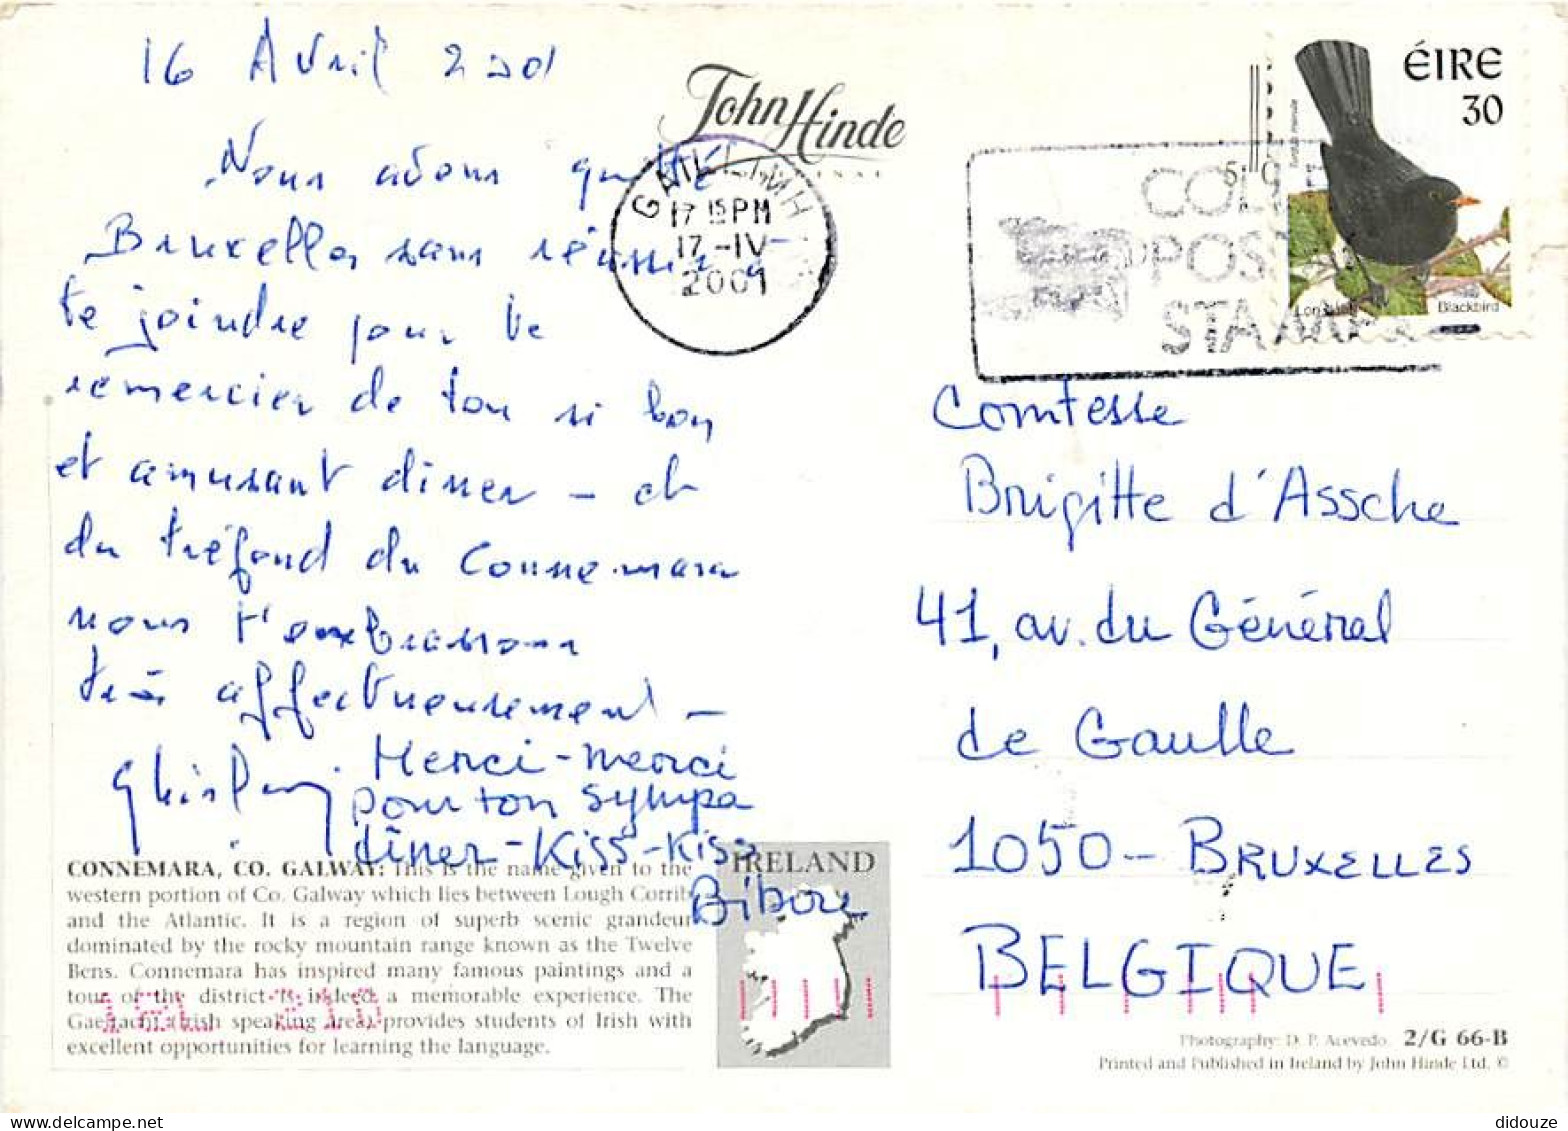 16 Avril 2001
Nous avons quitté
Bruxelles sans réussir à
te joindre pour te
remercier de ton si bon
et amusant diner - et
du tréfond du Connemara
nous t'embrassons
très affectueusement -
Ghislain
Merci-merci
pour ton sympa
dîner-Kiss-Kiss
CONNEMARA, CO. GALWAY: This is the name given to the
western portion of Co. Galway which lies between Lough Corrib
and the Atlantic. It is a region of superb scenic grandeur
dominated by the rocky mountain range known as the Twelve
Bens. Connemara has inspired many famous paintings and a
tour of the district is indeed a memorable experience. The
Gaeltacht (Irish speaking area) provides students of Irish with
excellent opportunities for learning the language.
IRELAND
John Hinde
GAILLIMH
17 15 PM
17-IV-
2001
COL
POS
STAM
ÉIRE
30
Turdus merula
Lon dubh
Blackbird
Comtesse
Brigitte d'Assche
41, av. du Général
de Gaulle
1050 - BRUXELLES
BELGIQUE
Photography: D. P. Acevedo. 2/G 66-B
Printed and Published in Ireland by John Hinde Ltd. ©
didouze